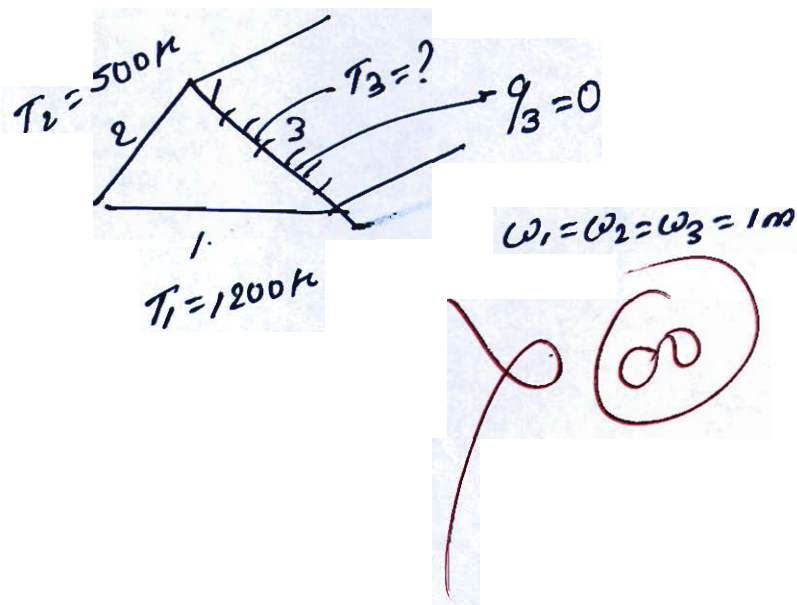 T₂ = 500K
T₃ = ?
q₃ = 0
2
3
1.
T₁ = 1200K
ω₁ = ω₂ = ω₃ = 1m